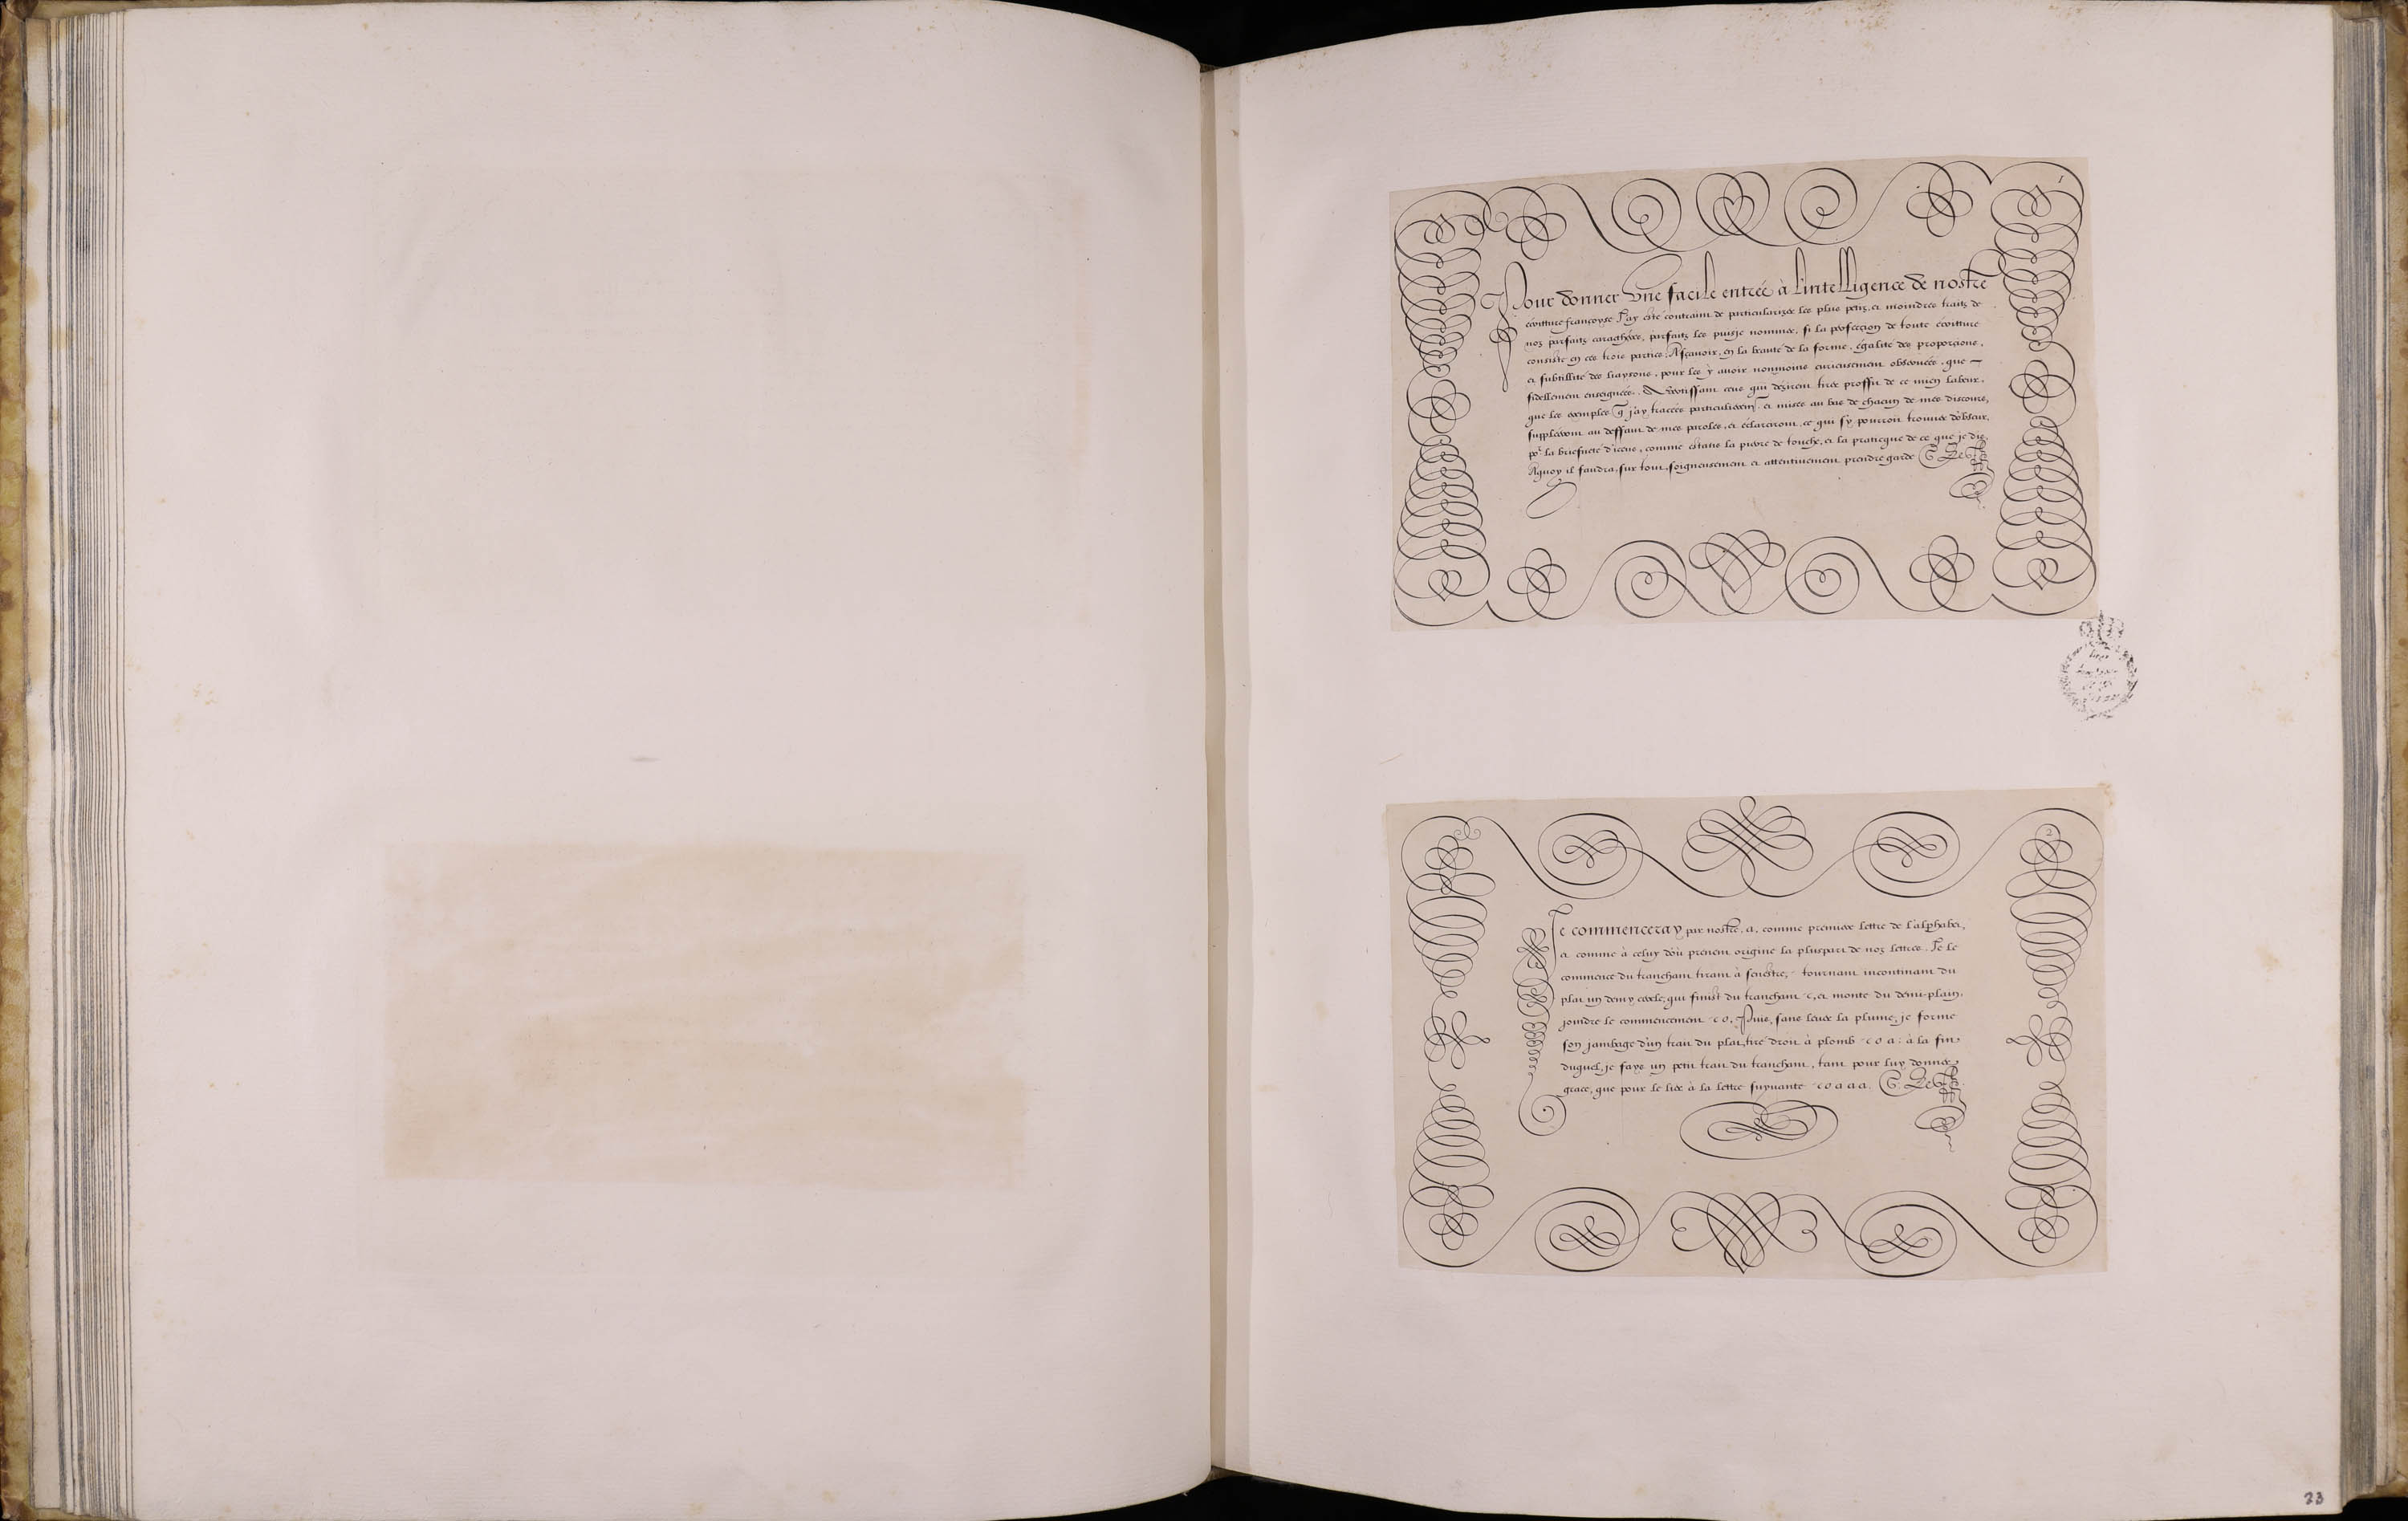 1
Pour donner vne facile entrée à l'intelligence de nostre
écritture françoyse J'ay esté contraint de particularizer les plus petiz, et moindres traitz de
noz parfaitz caracthéres, parfaitz les puisje nommer, si la perfection de toute écritture
consiste en ces trois parties, Asçauoir, en la beauté de la forme, égalité des proporçions,
et subtillité des liaysons, pour les y auoir nonmoins curieusement obseruées, que
fidellement enseignées. Auertissant ceus qui dézirent tirer proffit de ce mien labeur,
que les exemples q̃ j'ay tracées particulierem̃t et mises au bas de chacun de mes discours,
suppléeront au deffaut de mes paroles, et éclarciront, ce qui s'y pourroit trouuer d'obscur,
po.r la briefueté d'iceus, comme estans la pierre de touche, et la praticque de ce que je dis.
Aquoy il faudra, sur tout, soigneusement et attentiuement prendre garde G. Le
2
Je commenceray par nostre, a, comme premiere lettre de l'alphabet,
et comme à celuy d'où prenent origine la pluspart de noz lettres. Je le
commence du tranchant tirant à senestre, tournant incontinant du
plat un demy cercle, qui finist du tranchant c, et monte du demi-plain,
joindre le commencement c o. Puis, sans leuer la plume, je forme
son jambage d'un trait du plat, tiré droit à plomb c o a: à la fin
duquel, je fays un petit trait du tranchant, tant pour luy donner
grace, que pour le lier à la lettre suyuante c o a a a. G. Le
23